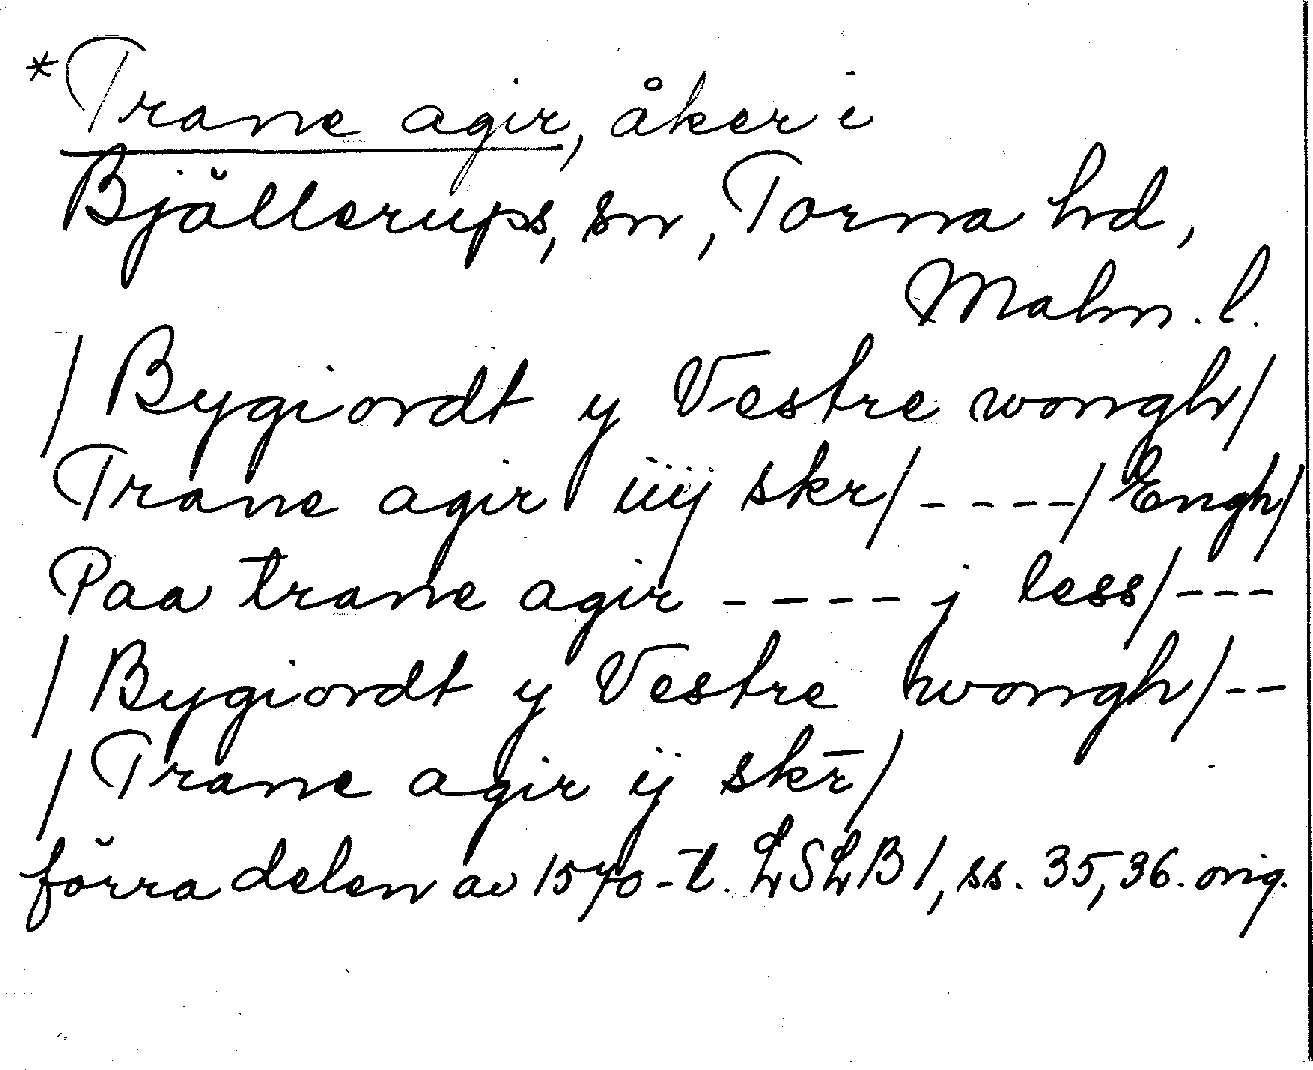 *Trane agir, åker i
Bjällerups, sn, Torna hd,
Malm. l.
/Bygiordt y Vestre wongh/
Trane agir iiij skr/----/Engh/
Paa trane agir ---- j less/---
/Bygiordt y Vestre wongh/--
/Trane agir ij skr̄/
förra delen av 1570-t. LSLB 1, ss. 35, 36. orig.